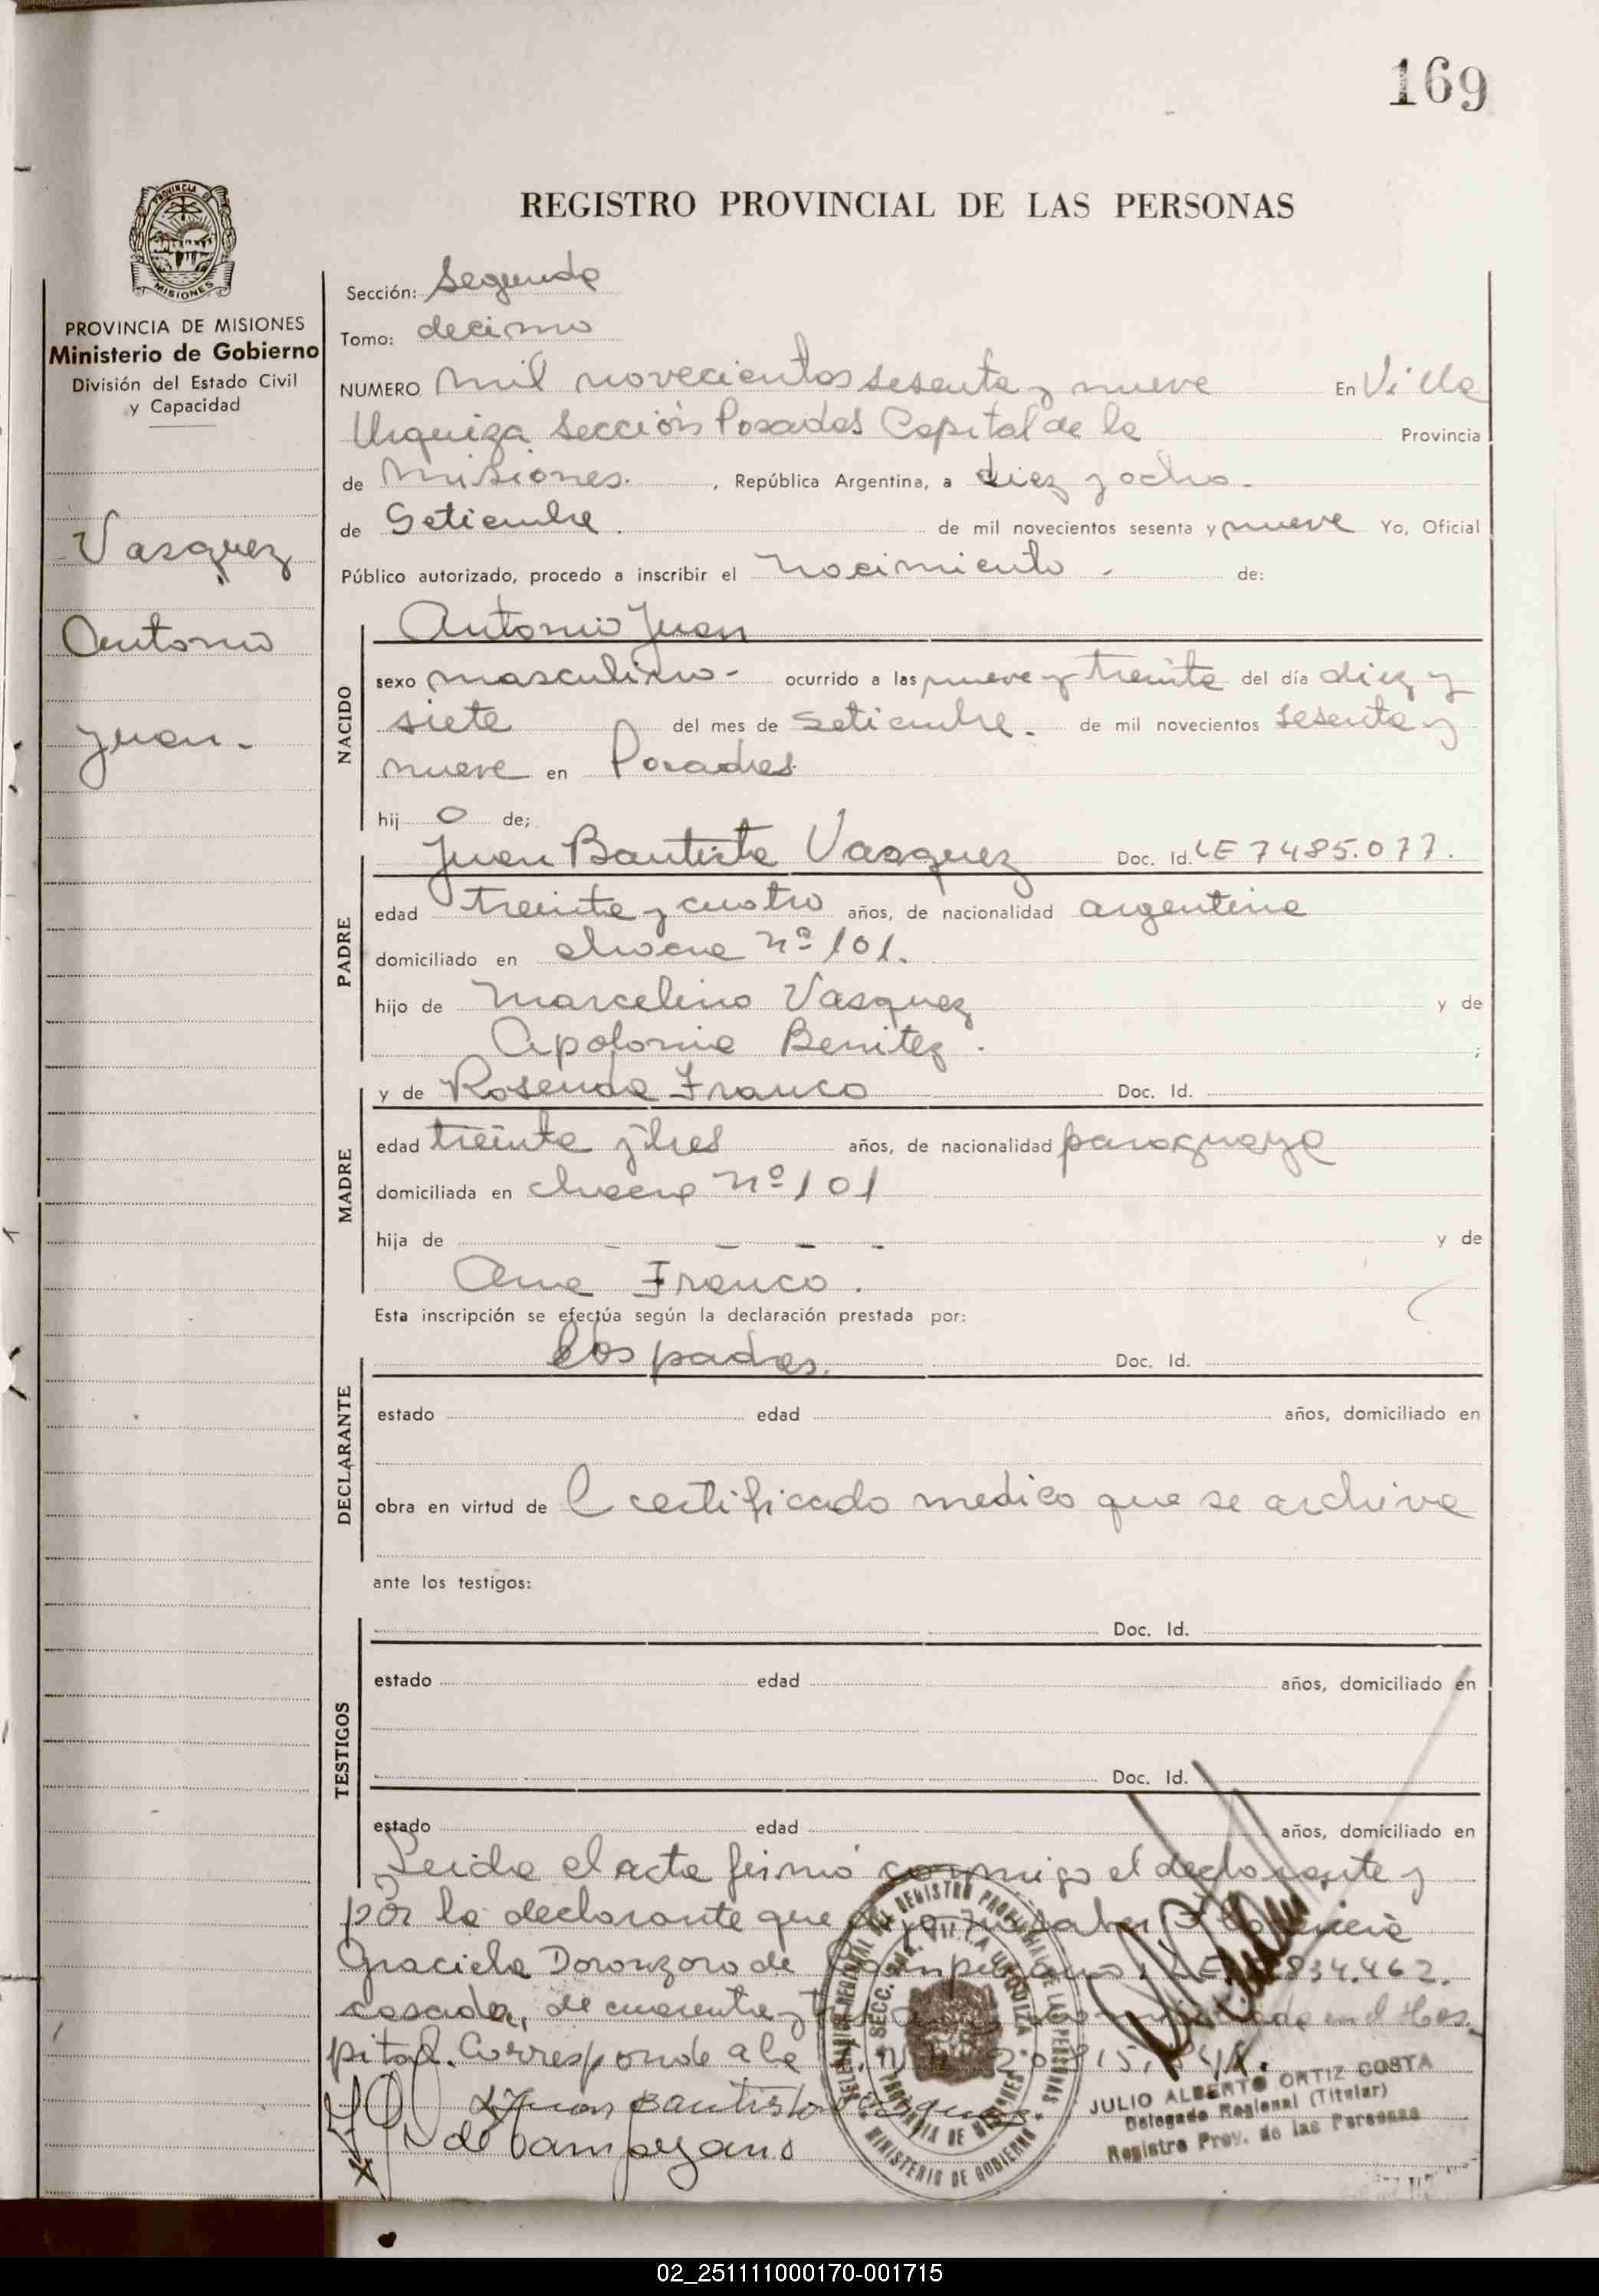 169
PROVINCIA DE
MISIONES
PROVINCIA DE MISIONES
Ministerio de Gobierno
División del Estado Civil
y Capacidad
Vasquez
Antonio
Juan.-
REGISTRO PROVINCIAL DE LAS PERSONAS
Sección: Segunda
Tomo: decimo
NUMERO Mil novecientos sesenta y nueve En Villa
Urquiza Sección Posadas Capital de la Provincia
de Misiones. , República Argentina, a diez y ocho.-
de Setiembre. de mil novecientos sesenta y nueve Yo, Oficial
Público autorizado, procedo a inscribir el Nacimiento.- de:
NACIDO
Antonio Juan
sexo masculino- ocurrido a las nueve y treinta del día diez y
siete del mes de Setiembre. de mil novecientos sesenta y
nueve en Posadas.
hij o de;
PADRE
Juan Bautista Vasquez Doc. Id. LE 7485.077.
edad treinta y cuatro años, de nacionalidad argentina
domiciliado en chacra nº 101.
hijo de Marcelino Vasquez y de
Apolonia Benitez. ;
MADRE
y de Rosenda Franco Doc. Id.
edad treinta y tres años, de nacionalidad paraguaya
domiciliada en chacra nº 101
hija de - - - - y de
Ana Franco.
Esta inscripción se efectúa según la declaración prestada por:
DECLARANTE
los padres. Doc. Id.
estado edad años, domiciliado en
obra en virtud de l certificado medico que se archiva
ante los testigos:
TESTIGOS
Doc. Id.
estado edad años, domiciliado en
Doc. Id.
estado edad años, domiciliado en
Leida el acta firmó conmigo el declarante y
por la declarante que dijo no saber
Graciela Doronzoro de Campezano,
casada, de cuarenta y en el Hos
pital. Corresponde a la
Juan Bautista Vasquez
de Campezano
DELEGADO REGIONAL DEL REGISTRO PROVINCIAL DE LAS PERSONAS
SECC. VILLA URQUIZA
PROVINCIA DE MISIONES
MINISTERIO DE GOBIERNO
JULIO ALBERTO ORTIZ COSTA
Delegado Regional (Titular)
Registro Prov. de las Personas
02_251111000170-001715